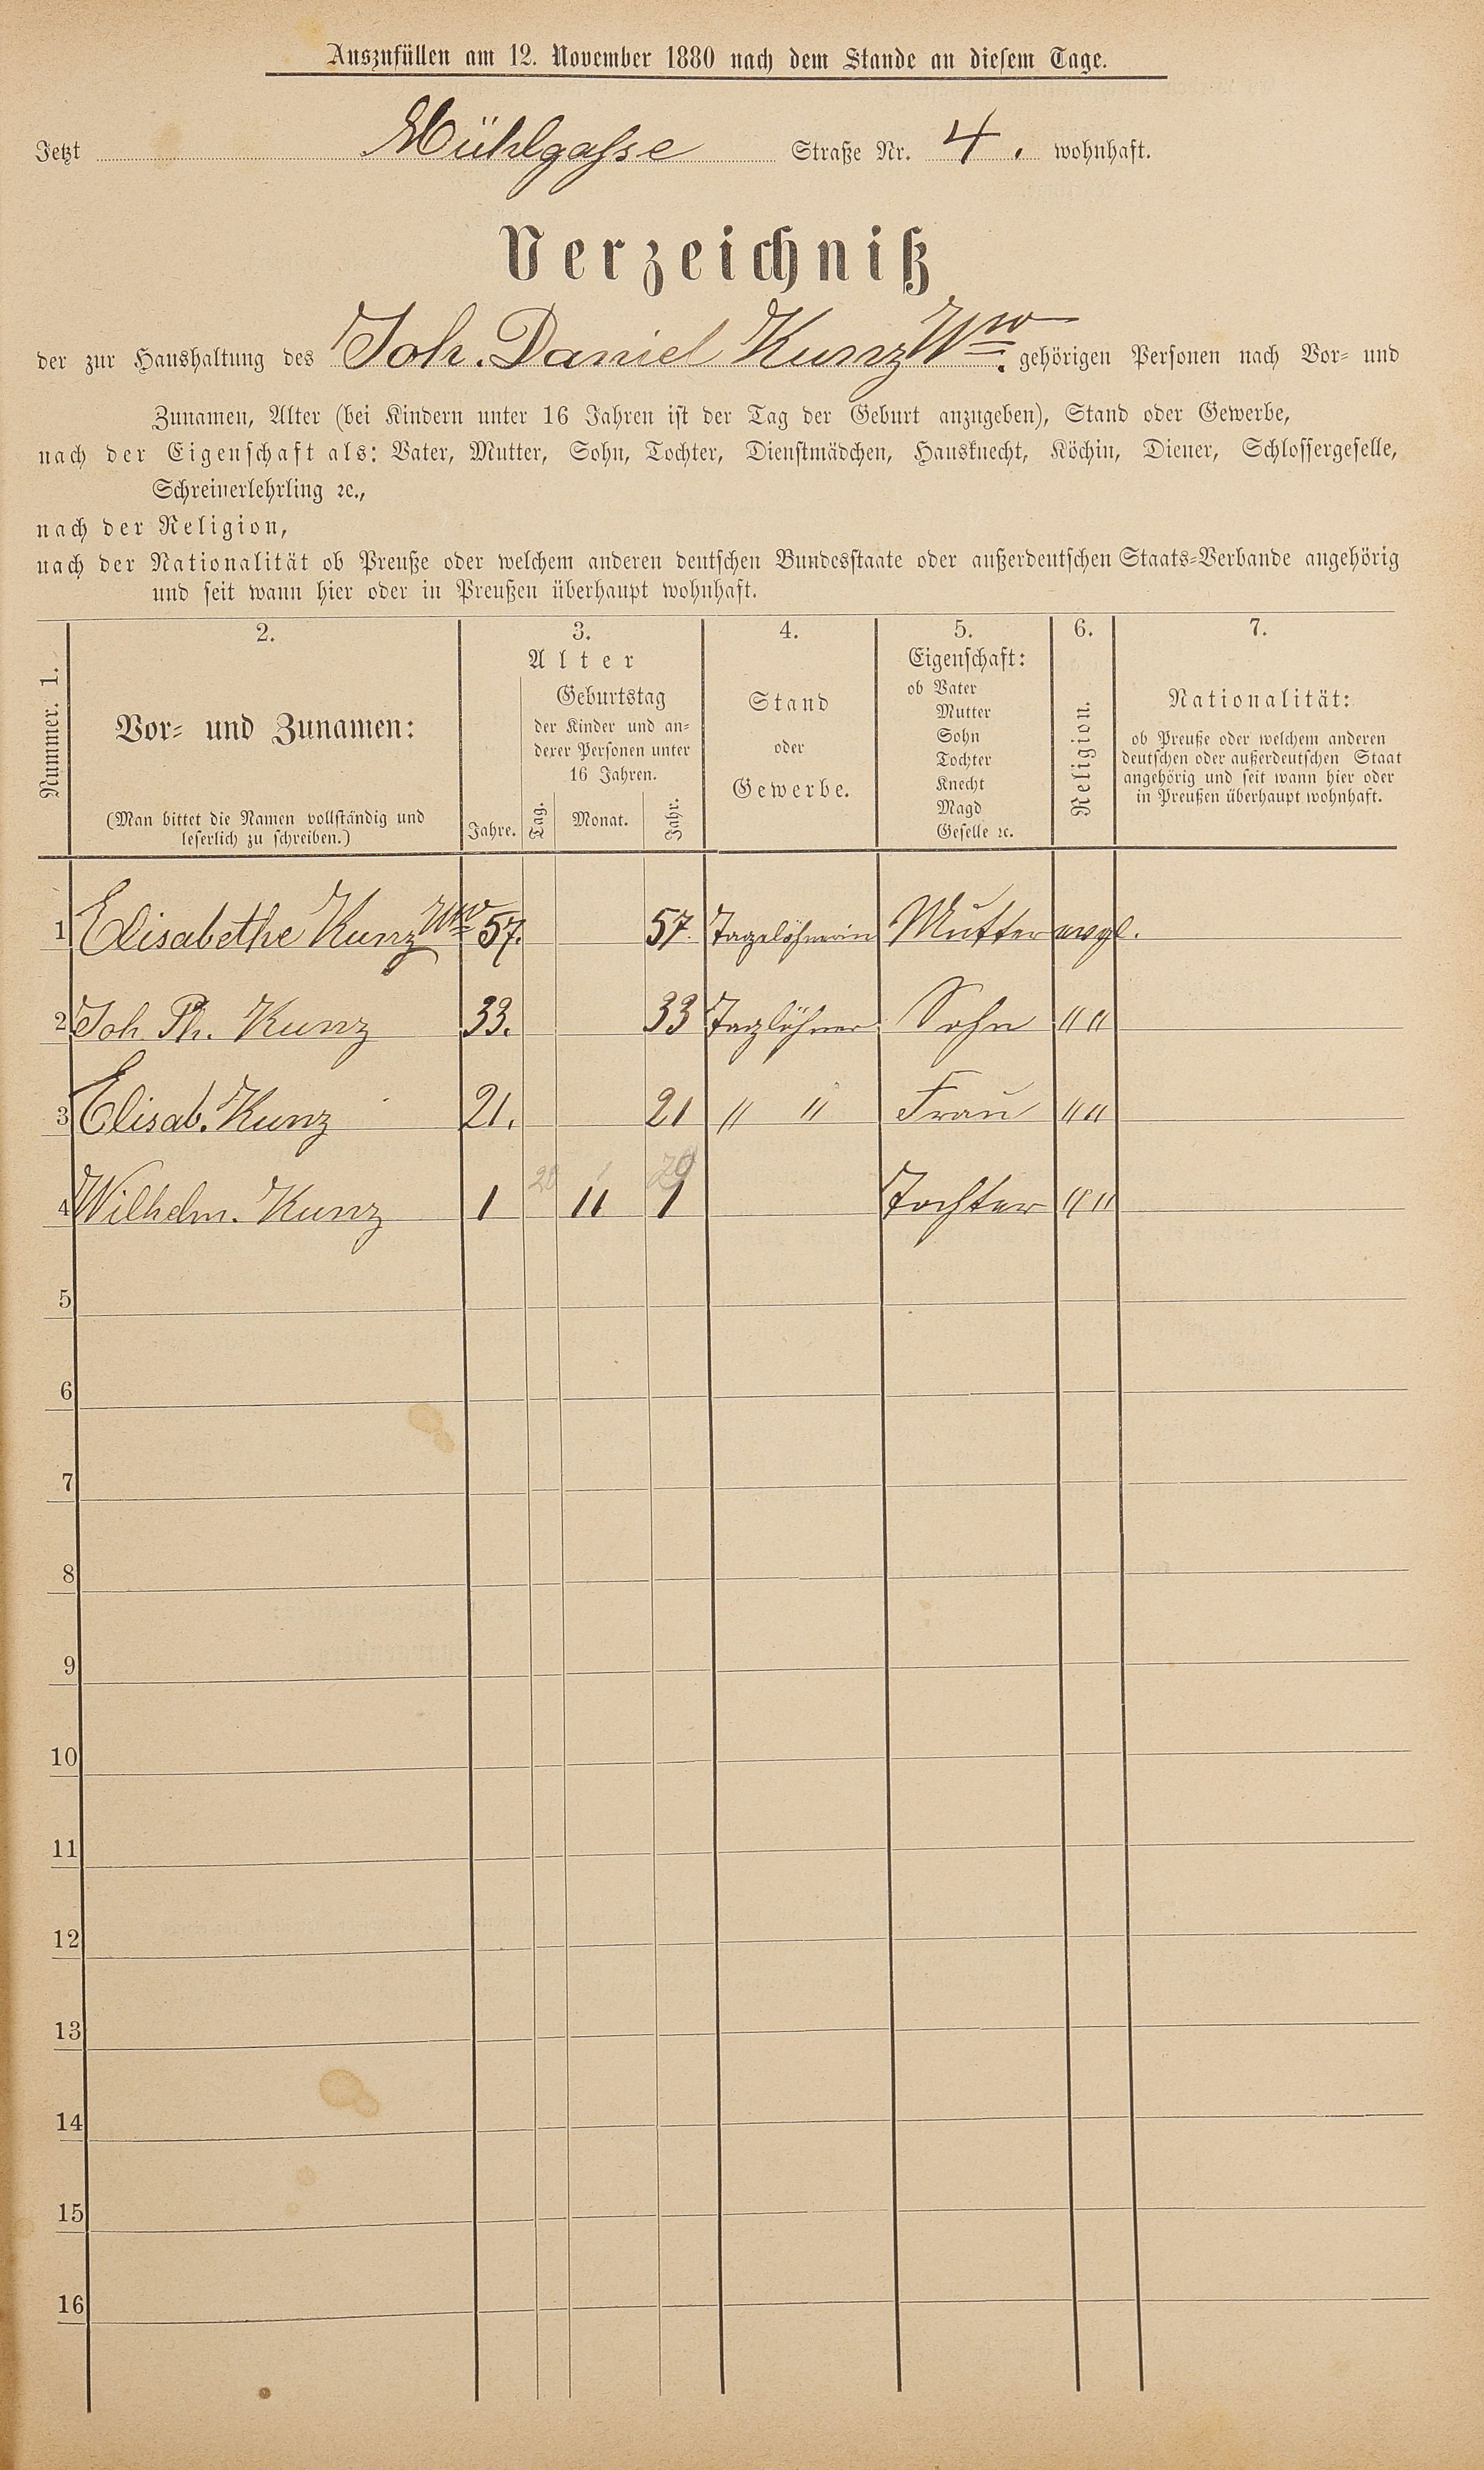 Auszufüllen am 12. November 1880 nach dem Stande an diesem Tage.
Jetzt Mühlgasse Straße Nr. 4. wohnhaft.
Verzeichniß
der zur Haushaltung des Joh. Daniel Kunz Wwe. gehörigen Personen nach Vor- und
Zunamen, Alter (bei Kindern unter 16 Jahren ist der Tag der Geburt anzugeben), Stand oder Gewerbe,
nach der Eigenschaft als: Vater, Mutter, Sohn, Tochter, Dienstmädchen, Hausknecht, Köchin, Diener, Schlossergeselle,
Schreinerlehrling ꝛc.,
nach der Religion,
nach der Nationalität ob Preuße oder welchem anderen deutschen Bundesstaate oder außerdeutschen Staats-Verbande angehörig
und seit wann hier oder in Preußen überhaupt wohnhaft.
Nummer. 1.
2.
Vor- und Zunamen:
(Man bittet die Namen vollständig und
leserlich zu schreiben.)
3.
Alter
Jahre.
Geburtstag
der Kinder und an-
derer Personen unter
16 Jahren.
Tag. Monat. Jahr.
4.
Stand
oder
Gewerbe.
5.
Eigenschaft:
ob Vater
Mutter
Sohn
Tochter
Knecht
Magd
Geselle ꝛc.
6.
Religion.
7.
Nationalität:
ob Preuße oder welchem anderen
deutschen oder außerdeutschen Staat
angehörig und seit wann hier oder
in Preußen überhaupt wohnhaft.
1 Elisabethe Kunz Wwe 57. 57. Tagelöhnerin Mutter evgl.
2 Joh. Ph. Kunz 33. 33 Taglöhner Sohn " "
3 Elisab. Kunz 21. 21 " " Frau " "
4 Wilhelm. Kunz 1 28 11 1 79 Tochter " "
5
6
7
8
9
10
11
12
13
14
15
16